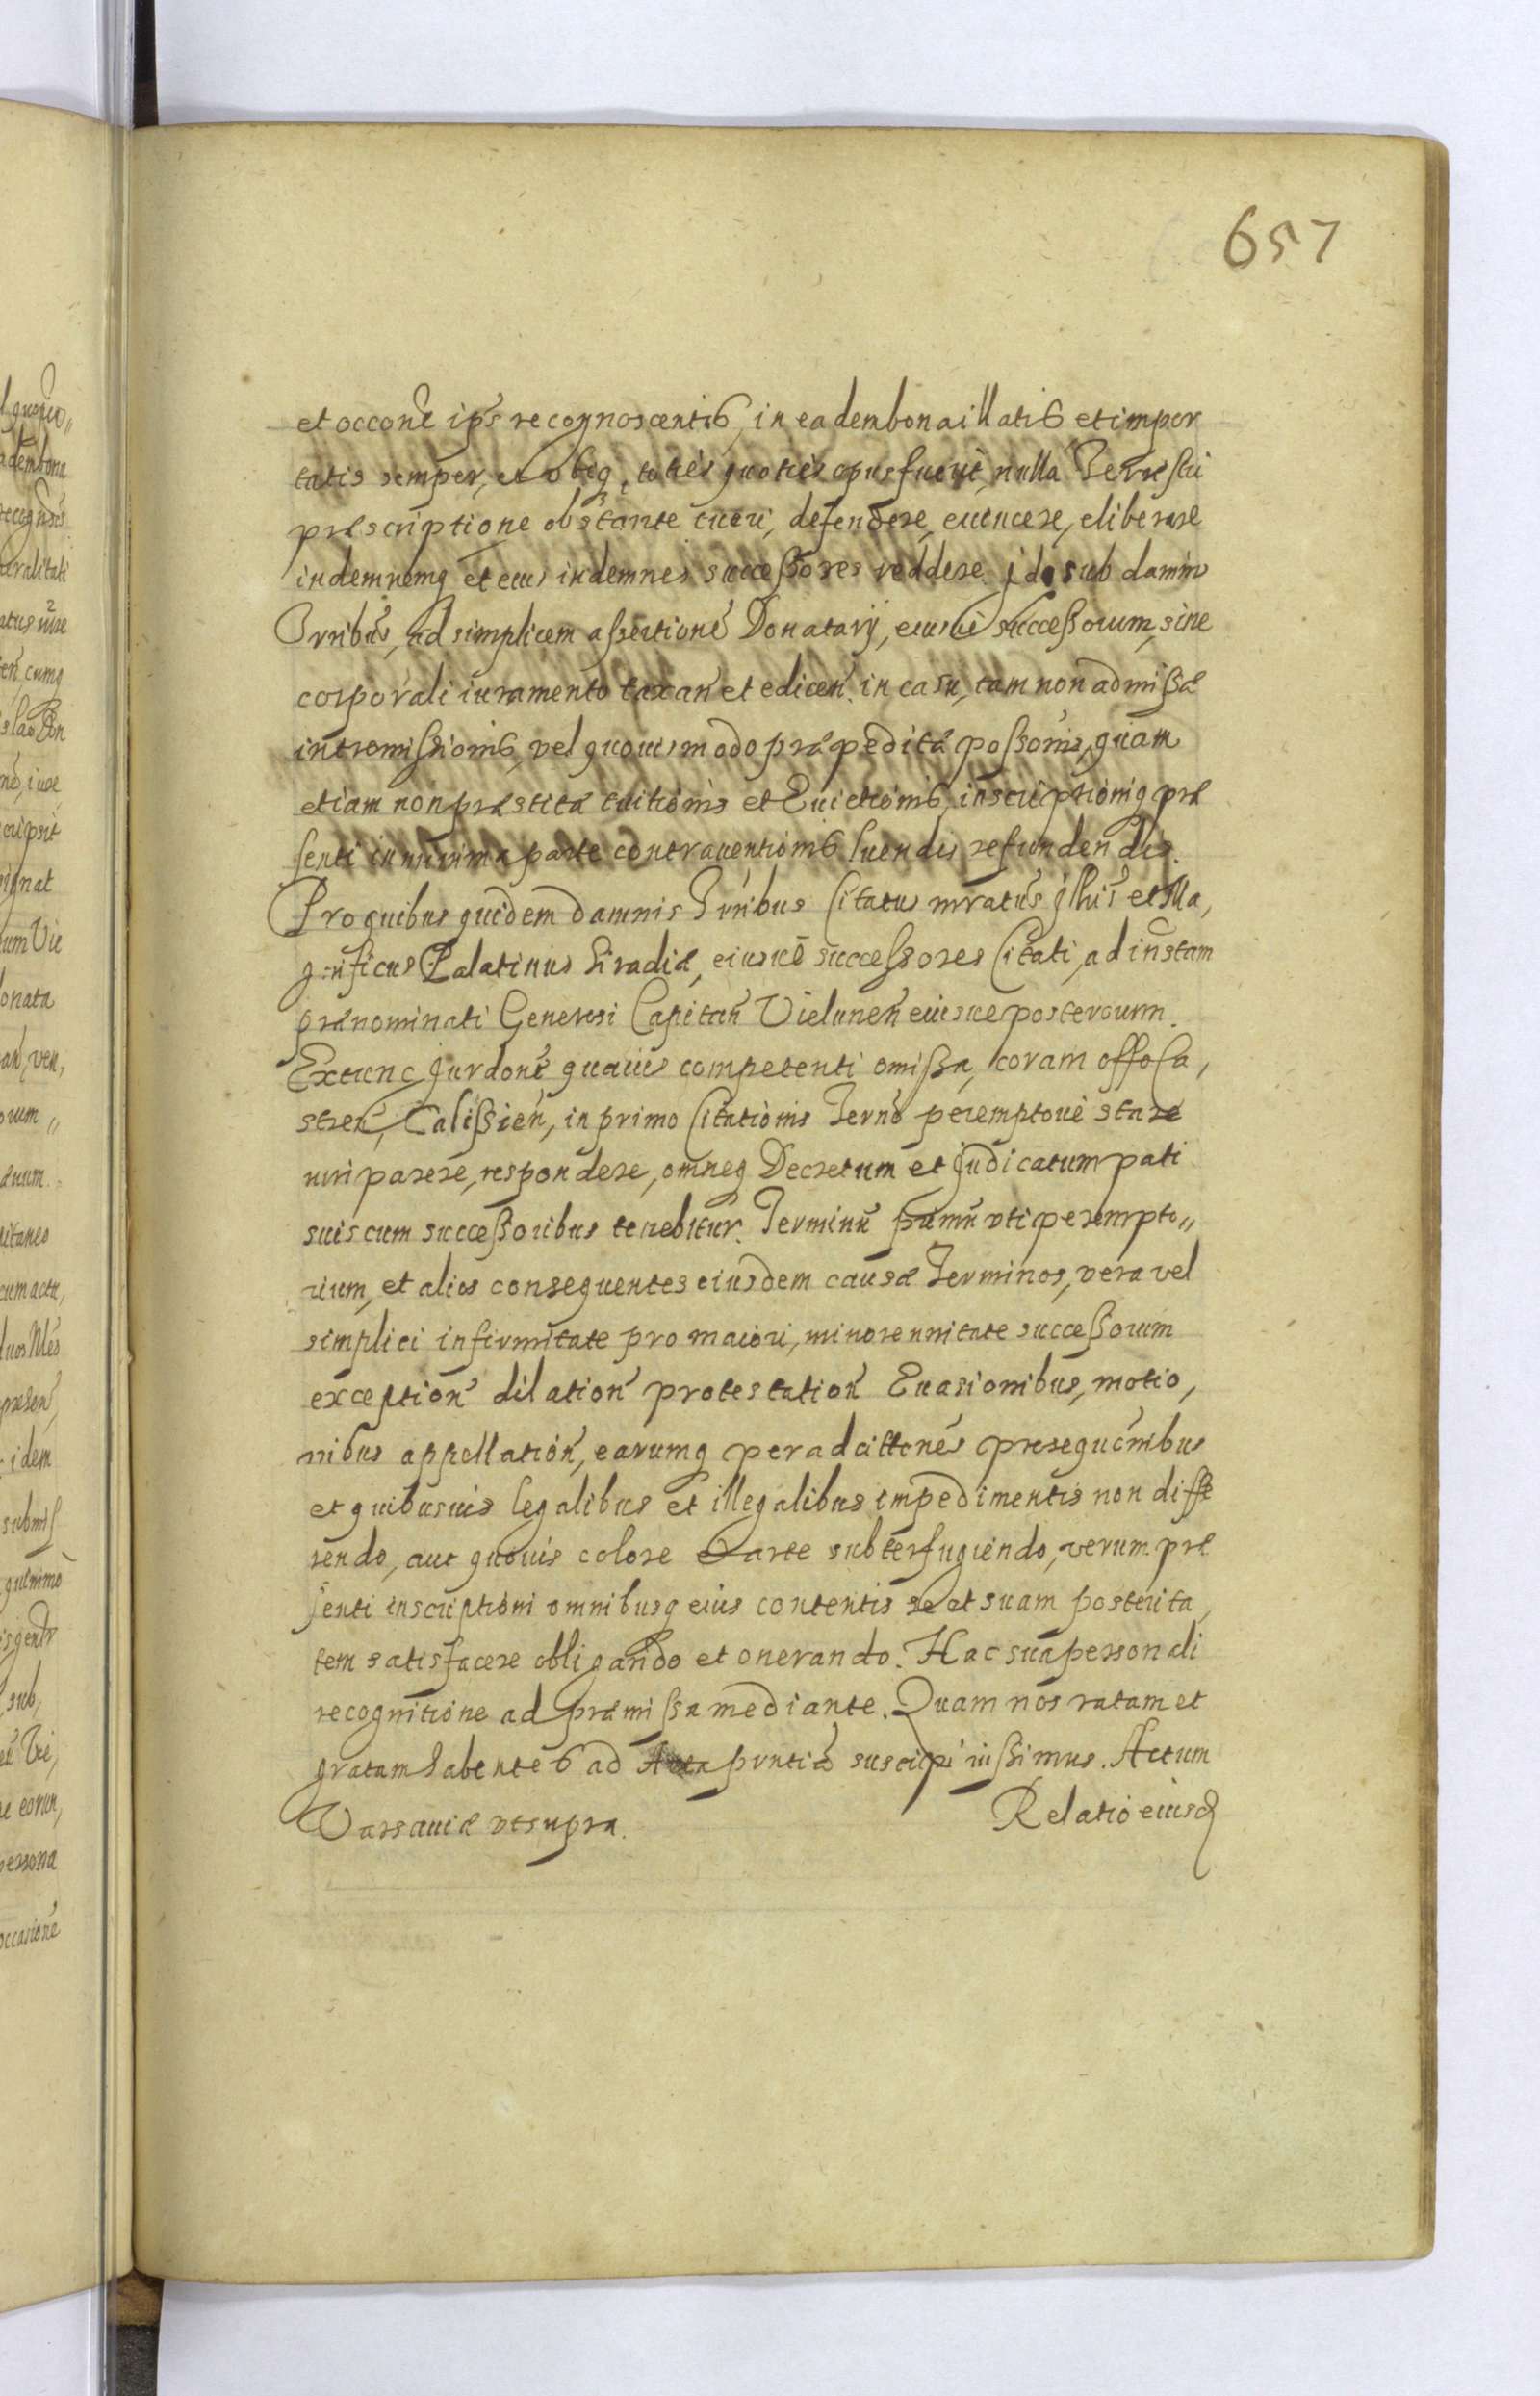 657
et occone ips recognoscentis, in eadem bona illatis et impor
tatis semper, et vbiq, toties quoties opus fuerit, nulla Terrestri
præscriptione obstante tueri, defendere, euincere, eliberare
indemnemq et eius indemnes successores reddere. Jdq sub damnis
Trribus, ad simplicem assertione Donatarij, eiusue successorum, sine
corporali iuramento taxan et edicen. in casu, tam non admissæ
intromissionis, vel quouismodo præpeditæ possonis, quam
etiam non præstitæ tuitionis et Euictionis, inscriptioniq præ
senti in minima parte contrauentionis luendis refundendis.
Pro quibus quidem damnis Trribus Citatus mratus Jllris et Ma,
gnificus Palatinus Siradiæ, eiusue successores Citati, ad instam
prænominati Generosi Capitan Vielunen eiusue posterorum.
Extunc Jurdone quauis competenti omissa, coram offo Ca,
stren, Calissien, in primo Citationis Terno peremptorie stare
iuri parere, respondere, omneq Decretum et Judicatum pati
suis cum successoribus tenebitur. Terminu primu vti perempto„
rium, et alios consequentes eiusdem causæ Terminos, vera vel
simplici infirmitate pro maiori, minorennitate successorum
exception dilation protestation Euasionibus, motio,
nibus appellation, earumq per adcittones prosequcnibus
et quibusuis legalibus et illegalibus impedimentis non diffe
rendo, aut quouis colore et arte subterfugiendo, verum præ
senti inscriptioni omnibusq eius contentis se et suam posterita,
tem satisfacere obligando et onerando. Hac sua personali
recognitione ad præmissa mediante. Quam nos ratam et
gratam habentes ad Acta pnntia suscipi iussimus. Actum
Varsauiæ vt supra. Relatio eiusd